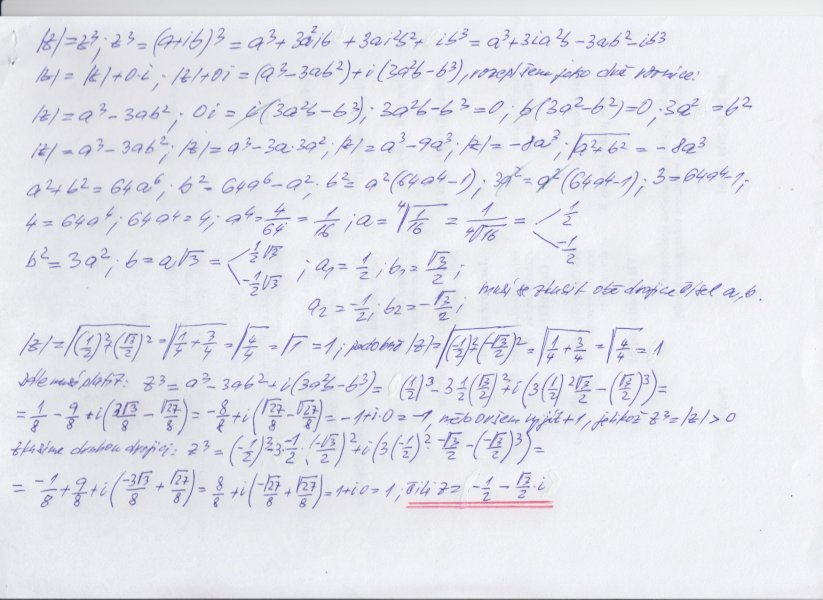 |z|=z³; z³=(a+ib)³ = a³+3a²ib +3ai²b²+ ib³ = a³+3ia²b-3ab²-ib³
|z| = |z|+0·i; |z|+0i = (a³-3ab²)+i(3a²b-b³), rozepíšem jako dvě rovnice:
|z| = a³-3ab²; 0i = i(3a²b-b³); 3a²b-b³=0; b(3a²-b²)=0; 3a² = b²
|z| = a³-3ab²; |z| = a³-3a·3a²; |z| = a³-9a³; |z| = -8a³; √(a²+b²) = -8a³
a²+b² = 64a⁶; b² = 64a⁶-a²; b² = a²(64a⁴-1); 3a² = a²(64a⁴-1); 3 = 64a⁴-1;
4 = 64a⁴; 64a⁴ = 4; a⁴ = 4/64 = 1/16; a = ⁴√(1/16) = 1/⁴√16 = < 1/2 -1/2
b² = 3a²; b = a√3 = < 1/2√3 -1/2√3 ; a₁ = 1/2; b₁ = √3/2;
a₂ = -1/2; b₂ = -√3/2; musí se zkusit obě dvojice čísel a, b.
|z| = √((1/2)²+(√3/2)²) = √(1/4+3/4) = √(4/4) = √1 = 1; podobně |z| = √((-1/2)²+(-√3/2)²) = √(1/4+3/4) = √(4/4) = 1
Dále musí platit: z³ = a³-3ab²+i(3a²b-b³) = (1/2)³-3·1/2(√3/2)²+i(3(1/2)²√3/2-(√3/2)³) =
= 1/8 - 9/8 + i(3√3/8 - √27/8) = -8/8 + i(√27/8 - √27/8) = -1+i·0 = -1, mělo ovšem vyjít +1, jelikož z³ = |z| > 0
Zkusíme druhou dvojici: z³ = (-1/2)³-3·-1/2·(-√3/2)²+i(3(-1/2)²·-√3/2-(-√3/2)³) =
= -1/8 + 9/8 + i(-3√3/8 + √27/8) = 8/8 + i(-√27/8 + √27/8) = 1+i0 = 1; čili z = -1/2 - √3/2·i